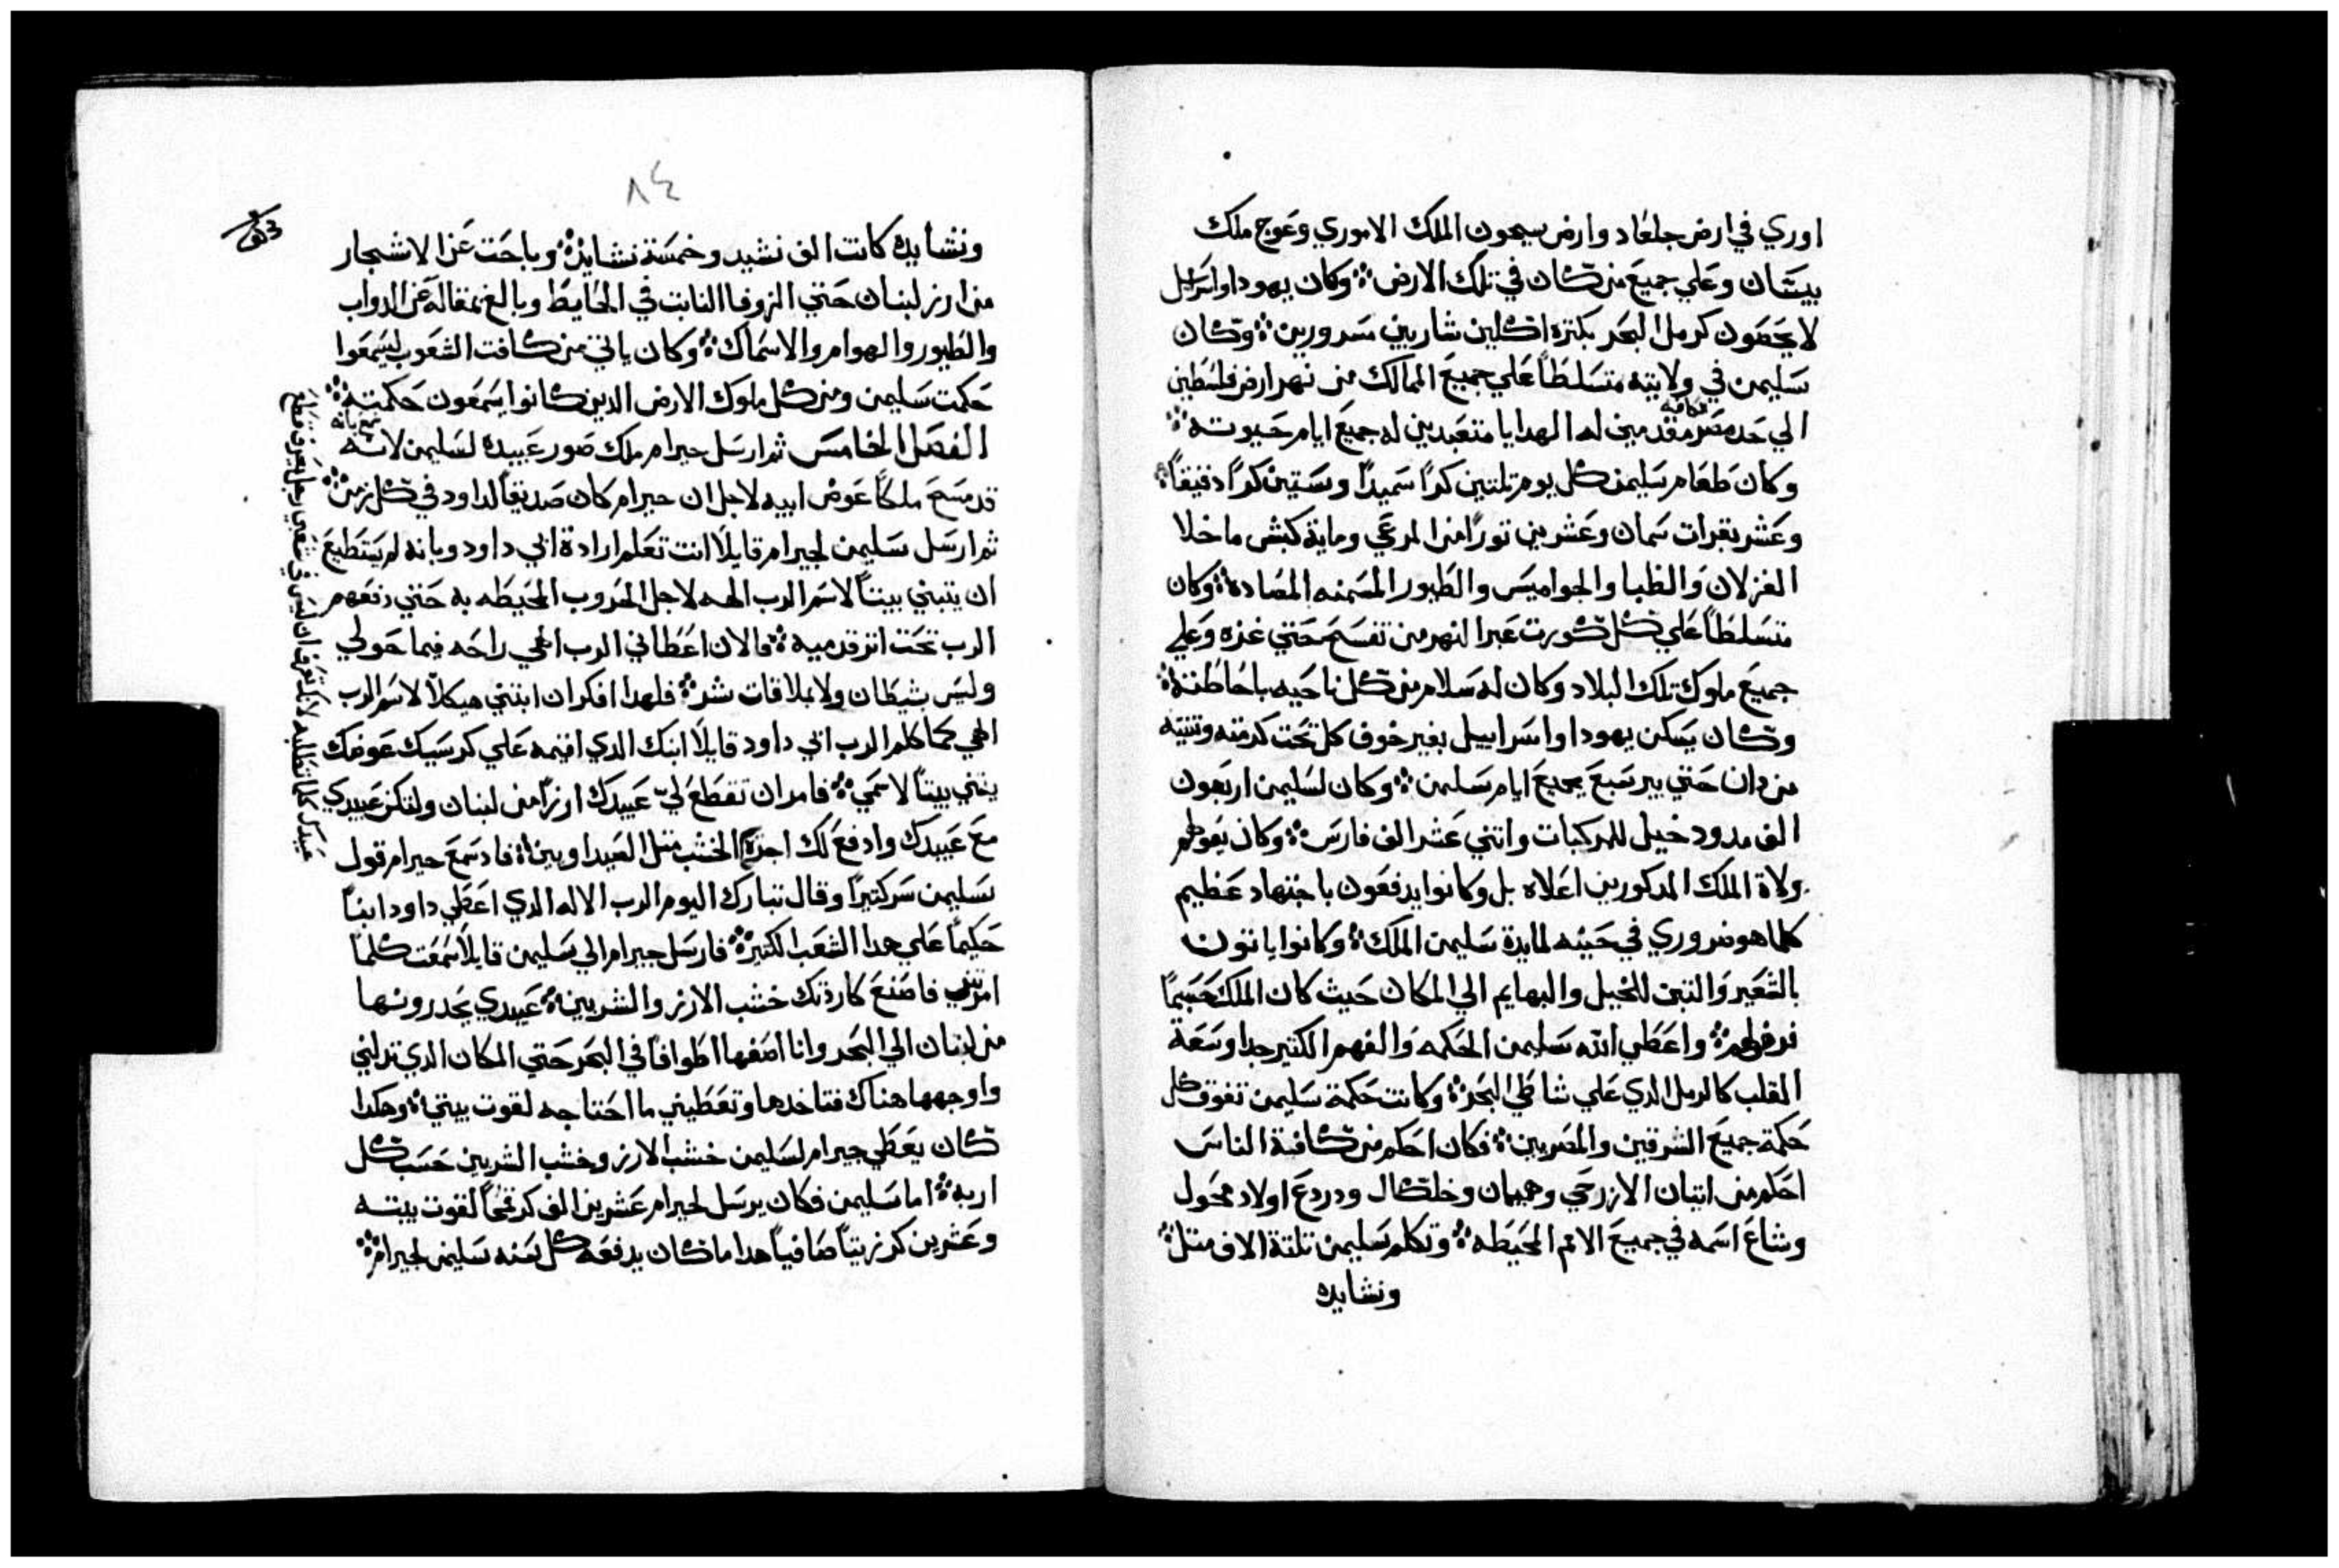 اوري في ارض جلعاد وارض سيحون الملك الاموري وعوج ملك
بيسان وعلي جميع من كان في تلك الارض ܀ وكان يهودا واسراىل
لا يحصون كرمل البحر بكتره اكلين شاربين مسرورين ܀ وكان
سليمن في ولايته متسلطاً علي جميع الممالك من نهر ارض فلسطين
الي حد مصر مقدمين له الهدايا متعبدين له جميع ايام حيوته ܀
وكان طعام سليمن كل يوم تلتين كرًا سميدًا وستين كرًا دقيقاً ܀
وعشر بقرات سمان وعشرين تورًا من المرعي وماية كبش ما خلا
الغزلان والظبا والجواميس والطيور المسمنه المصاده ܀ وكان
متسلطاً علي كل كورت عبر النهر من تفسح حتي غزه وعلي
جميع ملوك تلك البلاد وكان له سلام من كل ناحيه باحاطته ܀
وكان يسكن يهودا واسراييل بغير خوف كل تحت كرمته وتينيه
من دان حتي بير سبع جميع ايام سليمن ܀ وكان لسليمن اربعون
الف مدود خيل للمركبات واتني عشر الف فارس ܀ وكان يقوطم
ولاة الملك المدكورين اعلاه بل وكانوا يدفعون باجتهاد عظيم
كلما هو ضروري في حينه لمايدة سليمن الملك ܀ وكانوا ياتون
بالشعير والتبن للخيل والبهايم الي المكان حيث كان الملك حسبما
فرض لهم ܀ واعطي الله سليمن الحكمه والفهم الكتير جدا وسعة
القلب كالرمل الدي علي شاطي البحر ܀ وكانت حكمة سليمن تفوق كل
حكمة جميع الشرقين والمصريين ܀ فكان احكم من كافة الناس
احكم من ايتان الازرحي وهيمان وخلكال ودردع اولاد محول
وشاع اسمه في جميع الامم المحيطه ܀ وتكلم سليمن تلتة الاف متل ܀
ونشايده
٨٤
ونشايده كانت الف نشيد وخمسة نشايد ܀ وباحت عن الاشجار
من ارز لبنان حتي الزوفا النابت في الحايط وبالغ بمقاله عن الدواب
والطيور والهوام والاسماك ܀ وكان ياتي من كافت الشعوب ليسمعوا
حكمت سليمن ومن كل ملوك الارض الدين كانوا يسمعون حكمته ܀
الفصل الخامس تم ارسل حيرام ملك صور عبيده لسليمن لانه
سمع بانه
قد مسح ملكاً عوض ابيه لاجل ان حيرام كان صديقاً لداود في كل زمن ܀
تم ارسل سليمن لحيرام قايلاً انت تعلم ارادة ابي داود وبانه لم يستطيع
ان يتبني بيتاً لاسم الرب الهه لاجل الحروب المحيطه به حتي دفعهم
الرب تحت اتر قدميه ܀ فالان اعطاني الرب الهي راحه فيما حولي
وليس شيطان ولا ملاقات شر ܀ فلهدا افكر ان ابتني هيكلاً لاسم الرب
الهي كما كلم الرب ابي داود قايلاً ابنك الدي اقيمه علي كرسيك عوضك
يبتني بيتاً لاسمي ܀ فامر ان تقطع لي عبيدك ارزاً من لبنان ولتكن عبيدي
مع عبيدك وادفع لك اجرة
عبيدك كلما تطلبه لانك تعرف ان ليس في شعبي رجل يعرف قطع
الخشب متل الصيداويين ܀ فاد سمع حيرام قول
سليمن سر كتيرًا وقال تبارك اليوم الرب الاله الدي اعطي داود ابناً
حكيماً علي هدا الشعب الكتير ܀ فارسل حيرام الي سليمن قايلاً سمعت كلما
امرتني فاصنع كارادتك خشب الارز والشربين ܀ عبيدي يحدرونها
من لبنان الي البحر وانا اصفها اطوافاً في البحر حتي المكان الدي تدلني
واوجهها هناك فتاخدها وتعطيني ما احتاجه لقوت بيتي ܀ وهكدا
كان يعطي حيرام لسليمن خشب الارز وخشب الشربين حسب كل
اربه ܀ اما سليمن فكان يرسل لحيرام عشرين الف كر قمحاً لقوت بيته
وعشرين كر زيتاً صافياً هدا ما كان يدفعه كل سنه سليمن لحيرام ܀